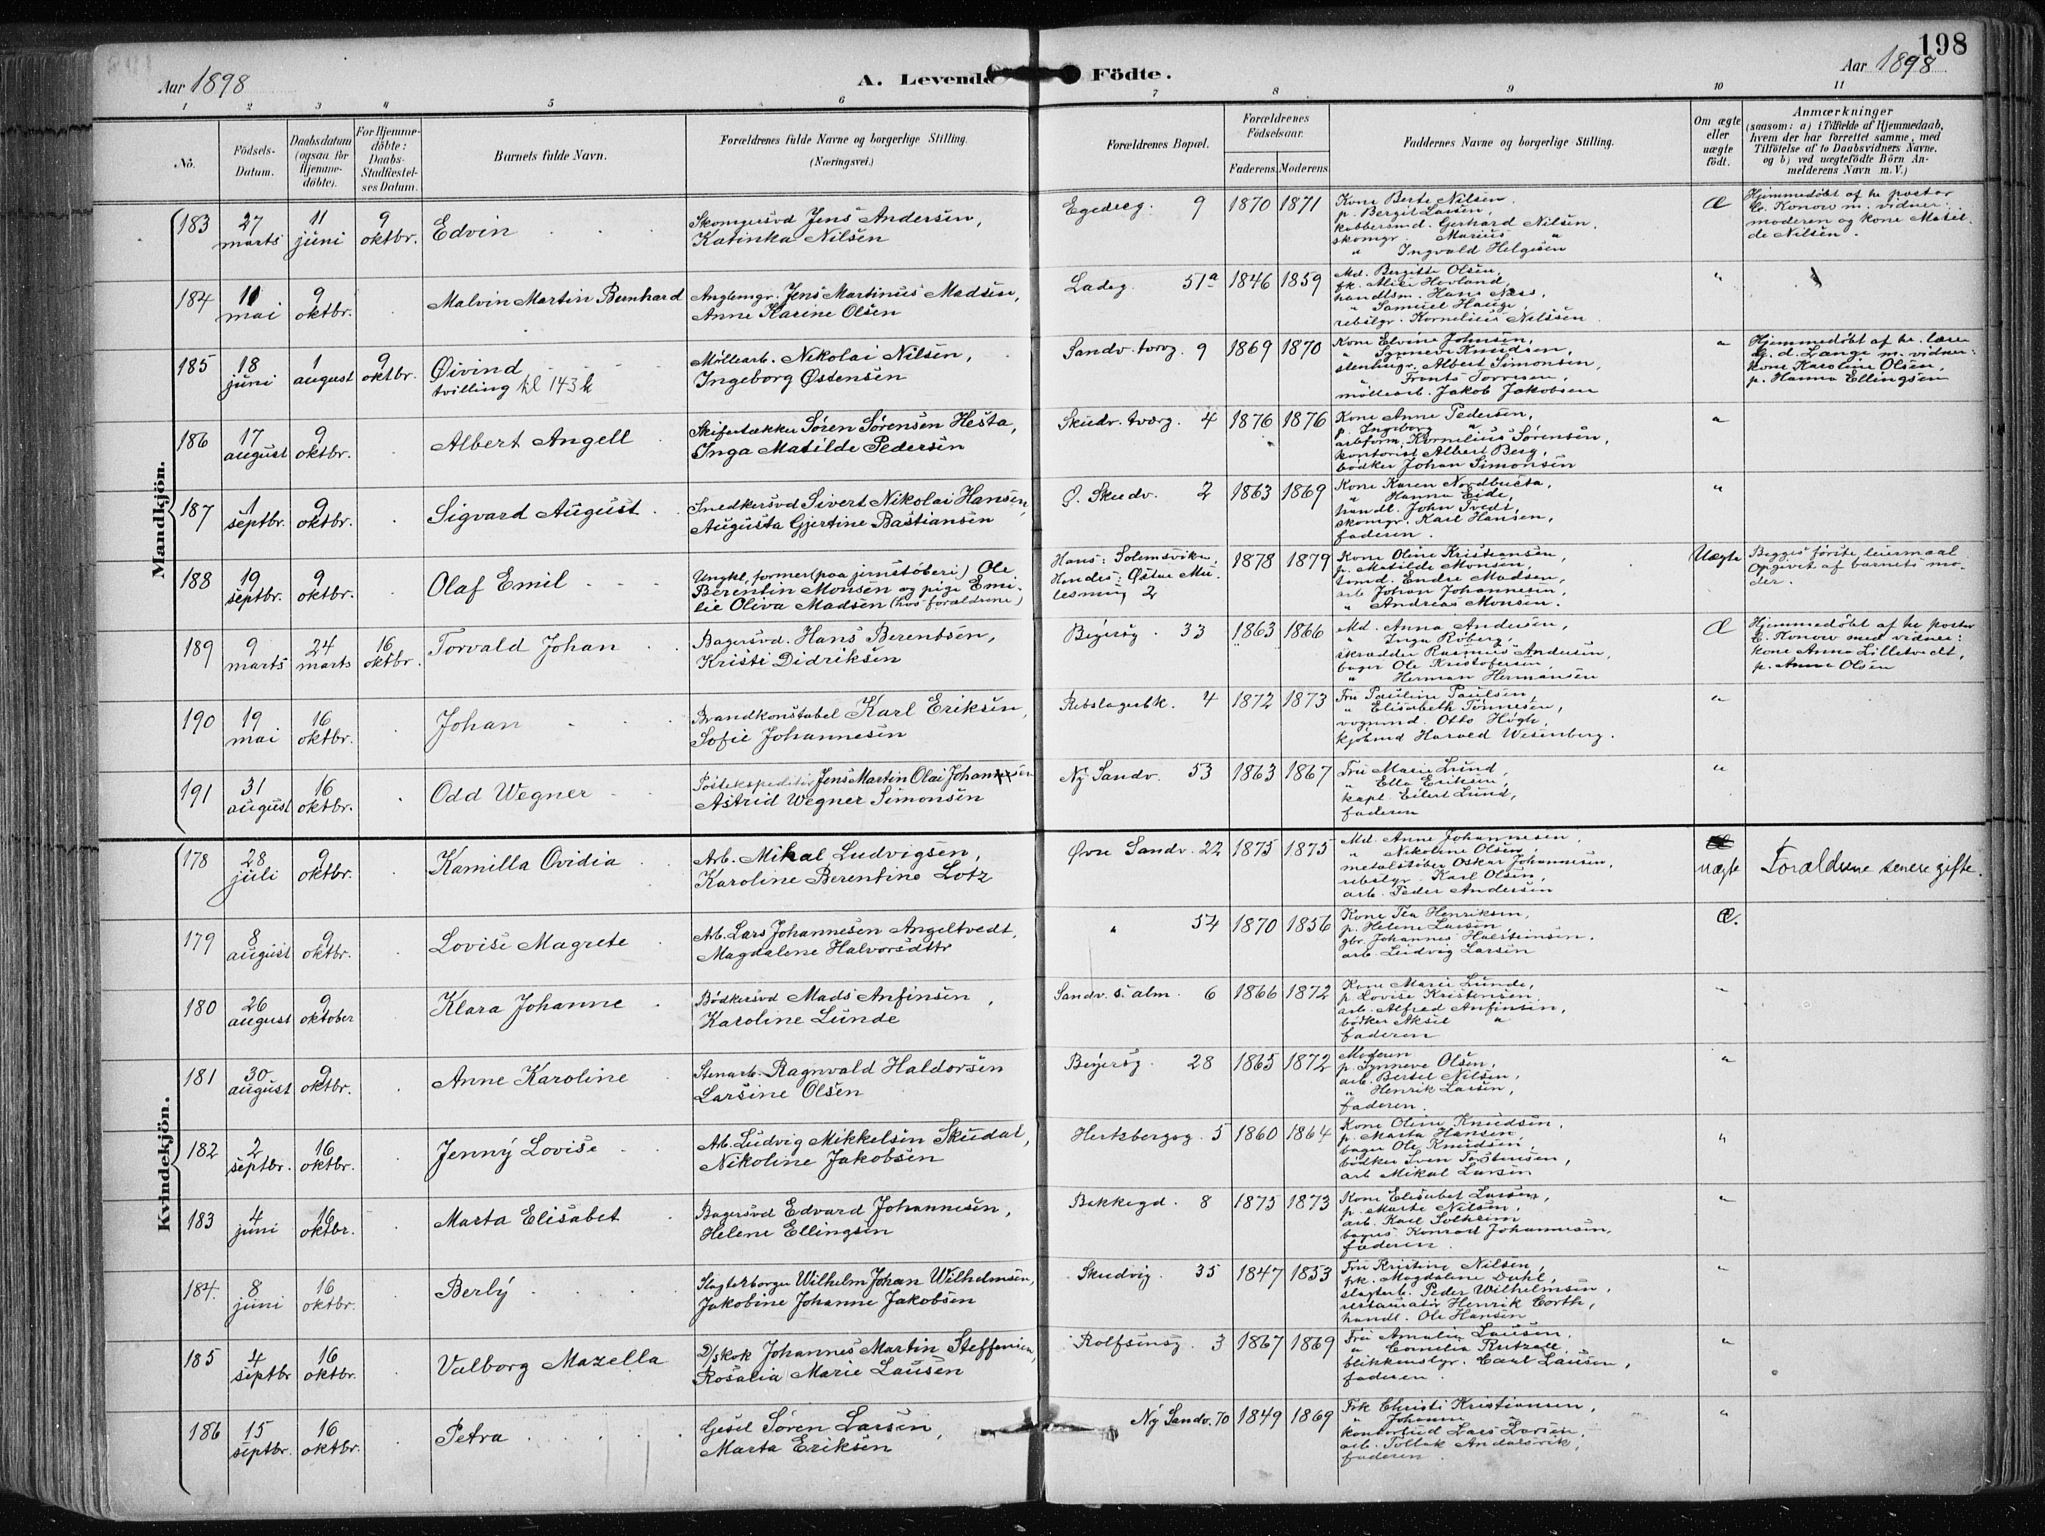 198
Aar 1898
A. Levende Födte.
Aar 1898
1 2 3 4 5 6 7 8 9 10 11
No. Födsels-Datum. Daabsdatum (ogsaa for Hjemme-döbte). For Hjemme-döbte: Daabs-Stadfæstel-ses Datum. Barnets fulde Navn. Forældrenes fulde Navne og borgerlige Stilling. (Næringsvei.) Forældrenes Bopæl. Forældrenes Födselsaar. Faderens. Moderens. Faddernes Navne og borgerlige Stilling. Om ægte eller uægte födt. Anmærkninger (saasom: a) i Tilfælde af Hjemmedaab, hvem der har forrettet samme, med Tilföielse af to Daabsvidners Navne, og b) ved uægtefödte Börn An-melderens Navn m. V.)
Mandkjön.
183 27 marts 11 juni 9 oktbr. Edvin
Skomgersvd Jens Andersen,
Katinka Nilsen
Egedesg. 9 1870 1871
Kone Berte Nilsen.
p. Bergit Larsen,
kobbersmd. Gerhard Nilsen.
skomgr. Marius "
" Ingvald Helgesen
Æ
Hjemmedøbt af hr. pastor
C. Konow m. vidner:
moderen og kone Matil-
de Nilsen.
184 11 mai 9 oktbr. Malvin Martin Bernhard
Jens Martinus Madsen,
Anne Karine Olsen
Ladeg. 51a 1846 1859
Md. Bergitte Olsen,
fk. Alise Hovland,
handlsm. Hans Næss,
" Samuel Hauge,
rebslgr. Kornelius Nilssen.
"
185 18 juni 1 august 9 oktbr. Øivind
tvilling til 143 k
Møllearb. Nikolai Nilsen,
Ingeborg Østensen
Sandv. torvg. 9 1869 1870
Kone Elvine Johnsen,
" Synneve Knudsen,
stenhugr. Albert Simonsen,
møllearb. Jakob Jakobsen
"
Hjemmedøbt af hr. lære
d. Lange m. vidner:
kone Karoline Olsen,
p. Hanna Ellingsen
186 17 august 9 oktbr. Albert Angell
Skifertækker Søren Sørensen Hesta,
Inga Matilde Pedersen
Skudv. tværg. 4 1876 1876
Kone Anne Pedersen,
p. Ingeborg "
arbform. Kornelius Sørensen,
kontorist Albert Berg,
bødker Johan Simonsen
"
187 1 septbr. 9 oktbr. Sigvard August
Smedkersvd Sivert Nikolai Hansen,
Augusta Gjertine Bastiansen
Ø. Skudv. 2 1863 1869
Kone Karen Nordbusta,
" Hanna Eide,
handl. John Tvedt,
skomgr. Karl Hansen,
faderen.
"
188 19 septbr. 9 oktbr. Olaf Emil
Ungkl. former (paa jernstøberi) Ole
Berentin Monsen og pige Emi-
lie Oliva Madsen (hos forældrene)
Hans: Solemsviken
Hendes: Østre Mu-
lesmug 2
1878 1879
Kone Oline Kristiansen,
p. Matilde Monsen,
tomd. Endre Madsen,
arb Johan Johannesen,
" Andreas Monsen.
Uægte
Begges første leiermaal
Opgivet af barnets mo-
der.
189 9 marts 24 marts 16 oktbr. Torvald Johan
Bagersvd. Hans Berentsen,
Kristi Didriksen
Beyersg. 33 1863 1866
Md. Anna Andersen,
" Inga Røberg,
skrædder Rasmus Andersen,
bager Ole Kristofersen,
" Herman Hermansen
Æ
Hjemmedøbt af hr pastor
C. Konow med vidner:
kone Anna Lilletvedt,
p. Anne Olsen
190 19 mai 16 oktbr. Johan
Brandkonstabel Karl Eriksen,
Sofie Johannesen
Rebslagerbk. 4 1872 1873
Fru Pauline Paulsen,
" Elisabeth Tønnesen,
vognmd. Otto Høgh,
kjøbmd Harald Wesenberg.
"
191 31 august 16 oktbr. Odd Wegner
Postekspeditør Jens Martin Olai Johannesen
Astrid Wegner Simonsen
Ny Sandv. 53 1863 1867
Fru Marie Lund,
" Ella Eriksen,
kapt. Eilert Lund,
faderen
"
Kvindekjön.
178 28 juli 9 oktbr. Kamilla Ovidia
Arb. Mikal Ludvigsen,
Karoline Berentine Lotz
Øvre Sandv. 22 1875 1875
Md. Anne Johannesen
" Nikoline Olsen,
metalstøber Oskar Johannesen,
rebslgr. Karl Olsen,
arb. Peder Andersen
uægte
Forældrene senere gifte.
179 8 august 9 oktbr. Lovise Magrete
Arb. Lars Johannesen Angeltvedt,
Magdalene Halvorsdttr
" 54 1870 1856
Kone Tea Henriksen,
p. Helene Larsen,
gbr. Johannes Halsteinsen.
arb. Ludvig Larsen
Æ.
180 26 august 9 oktober Klara Johanne
Bødkersvd Mads Anfinsen,
Karoline Lunde
Sandv. s. alm. 6 1866 1872
Kone Marie Lunde,
p. Lovise Kristensen.
arb. Alfred Anfinsen,
bødker Aksel "
faderen
"
181 30 august 9 oktbr. Anne Karoline
Stenarb. Ragnvald Haldorsen
Larsine Olsen
Beyersg. 28 1865 1872
Moderen
p. Synneve Olsen,
arb. Bertel Nilsen,
" Henrik Larsen,
faderen.
"
182 2 septbr. 16 oktbr. Jenny Lovise
Arb. Ludvig Mikkelsen Skudal,
Nikoline Jakobsen
Hertzbergsg. 5 1860 1864
Kone Oline Knudsen,
p. Marta Hansen,
bager Ole Knudsen,
bødker Sven Torstensen,
arb Mikal Larsen
"
183 4 juni 16 oktbr. Marta Elisabet
Bagersvd Edvard Johannesen,
Helene Ellingsen
Bakkegd. 8 1875 1873
Kone Elisabet Larsen,
p. Marte Nilsen,
arb. Karl Solheim
bager Konrad Johannesen,
faderen.
"
184. 8 juni 16 oktbr. Berly
Slagterborger Wilhelm Johan Wilhelmsen,
Jakobine Johanne Jakobsen
Skudvig. 35 1847 1853
Fru Kristine Nilsen,
frk. Magdalene Dahl,
slagterb. Peder Wilhelmsen,
restauratør Henrik Corth,
handl. Ole Hansen
"
185 4 septbr 16 oktbr. Valborg Mazella
D/skok Johannes Martin Steffensen,
Rosalia Marie Lausen
Rolfsensg. 3 1867 1869
Fru Amalia Lausen,
" Cornelia
blikkenslgr. Carl Lausen,
faderen.
"
186 15 septbr. 16 oktbr. Petra
Gesel Søren Larsen,
Marta Eriksen
Ny Sandv. 70 1849 1869
Frk Christi Kristiansen,
" Johanne "
kontorbud Lars Larsen,
arb. Tollak Andalsvik,
faderen.
"